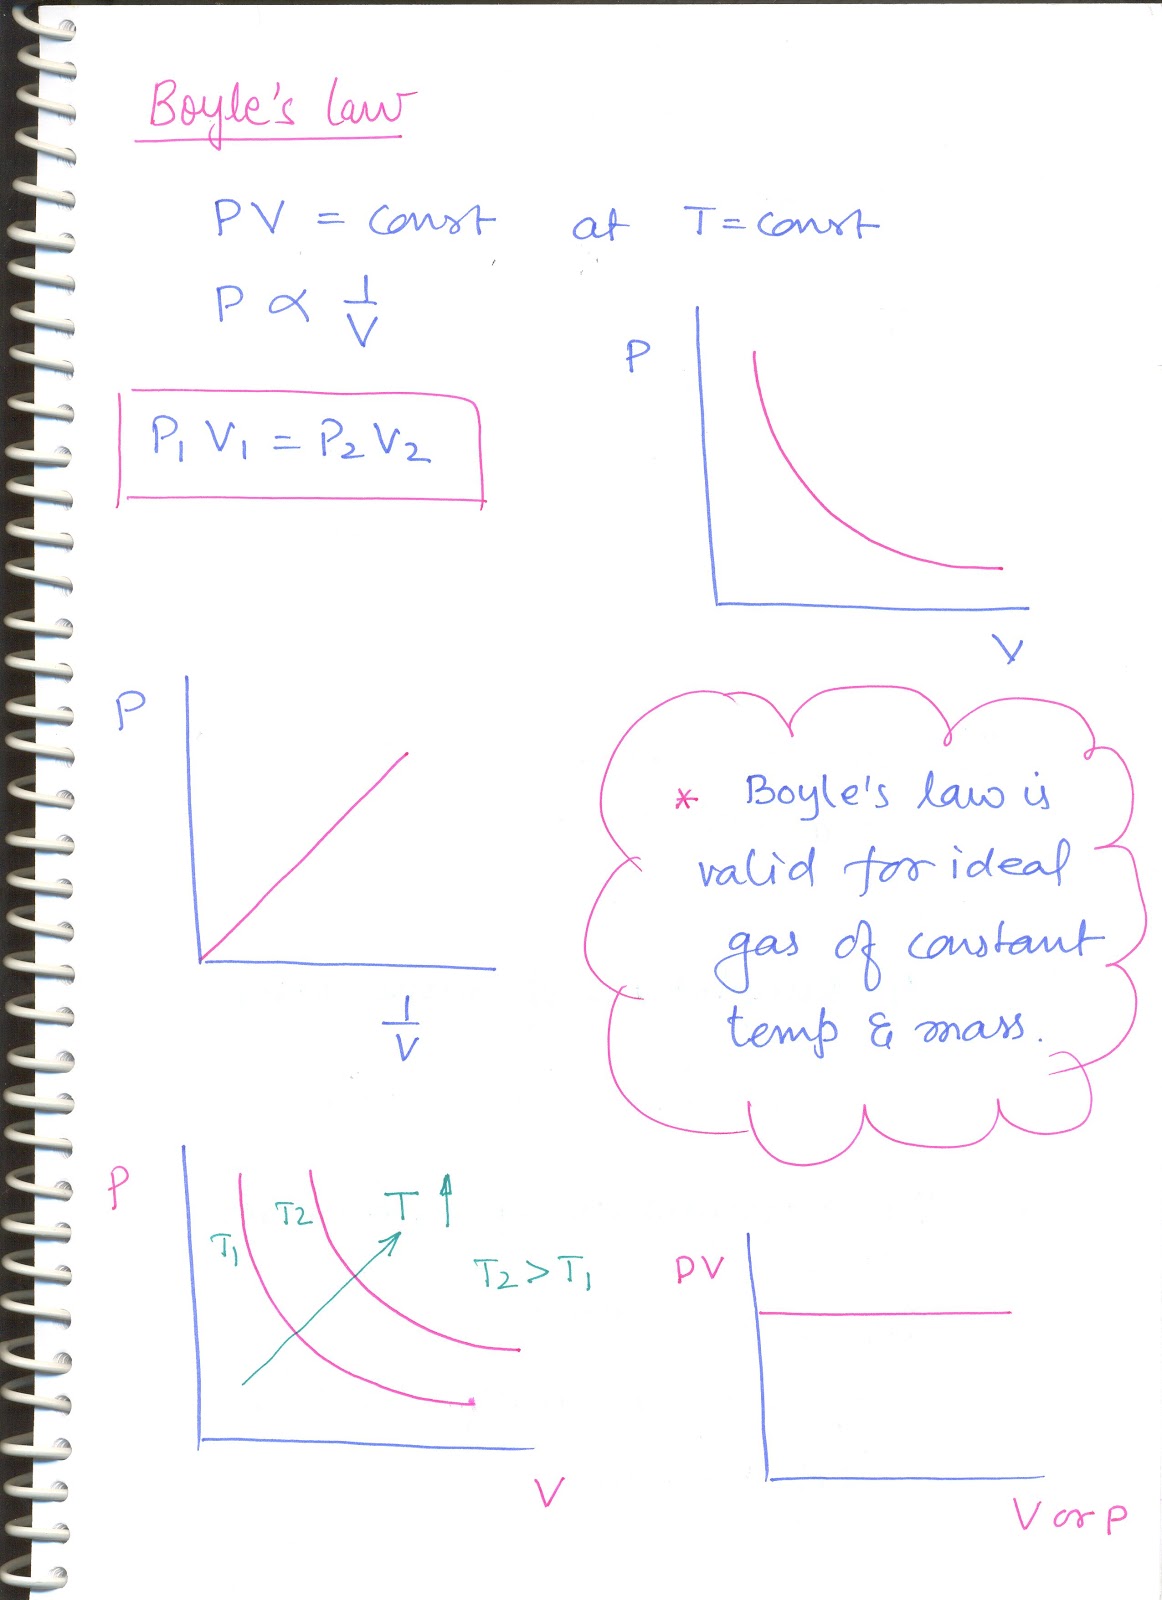 Boyle's law
PV = const at T = const
P ∝ 1/V
P₁ V₁ = P₂ V₂
P
V
P
1/V
* Boyle's law is
valid for ideal
gas of constant
temp & mass.
P
T₁
T₂
T ↑
T₂ > T₁
V
PV
V or P